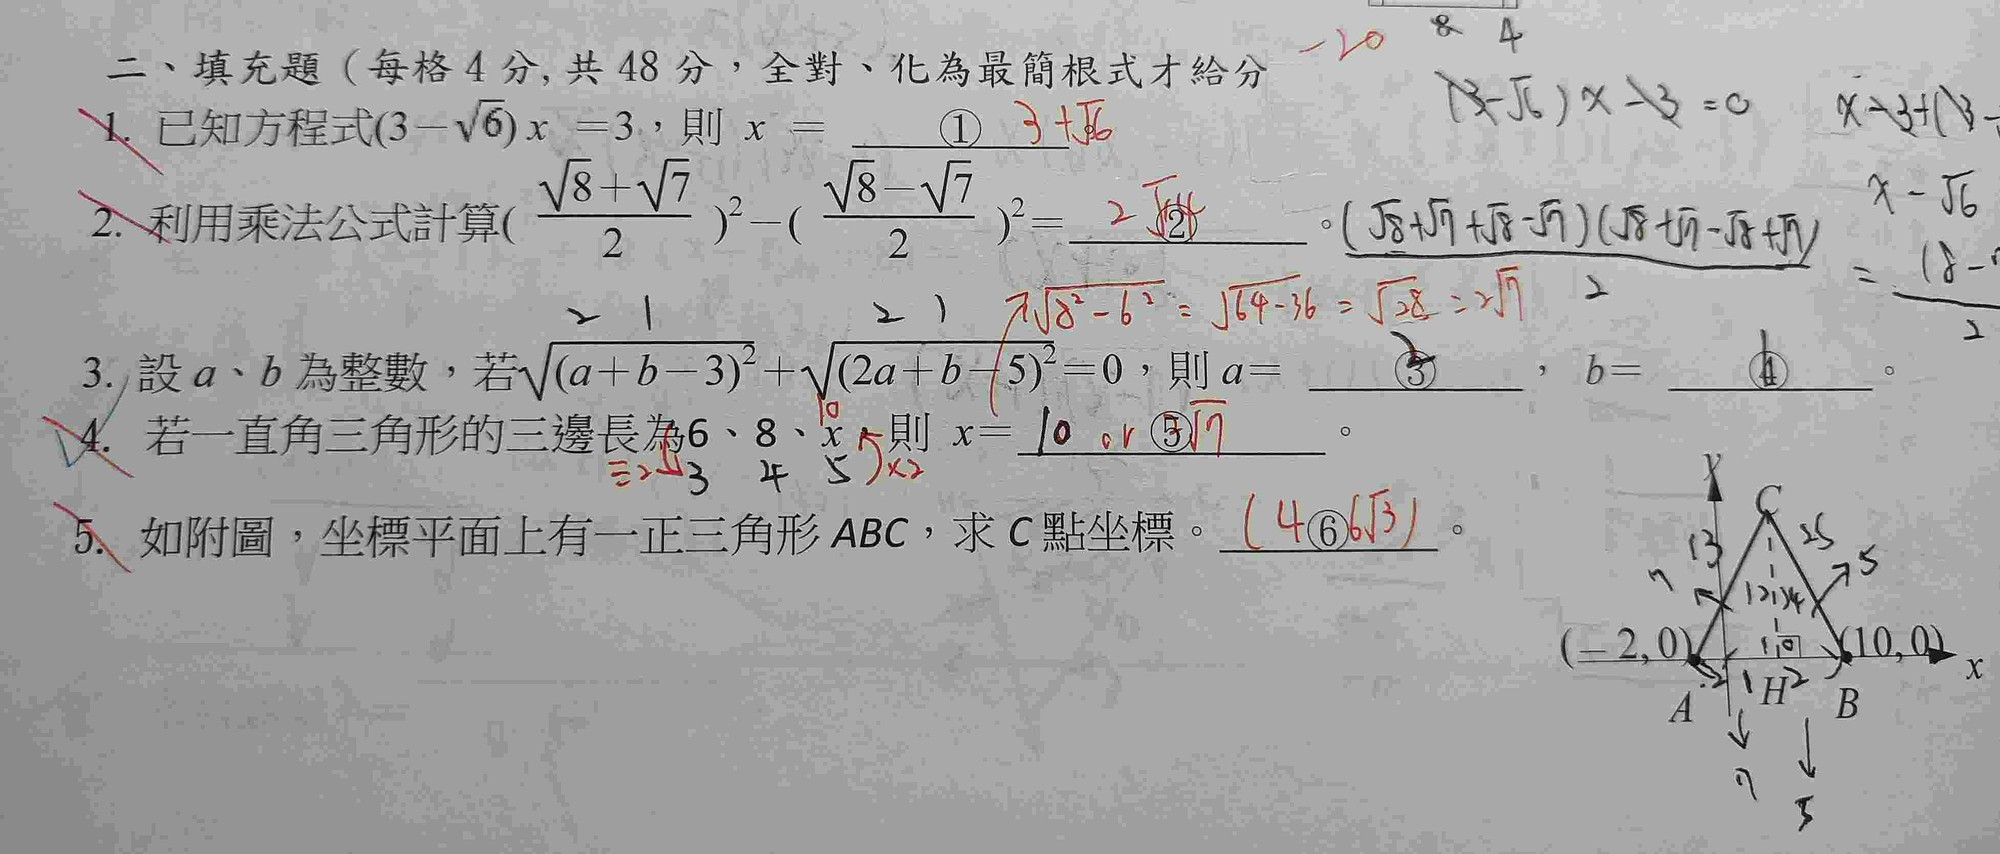 8 4
二、填充題（每格 4 分, 共 48 分，全對、化為最簡根式才給分 -20
(3-√6) x -3 = 0
1. 已知方程式(3-√6) x =3，則 x = ① 3+√6
x - √6
2. 利用乘法公式計算( (√8+√7)/2 )²-( (√8-√7)/2 )²= 2√14 ② 。
(√8+√7+√8-√7)(√8+√7-√8+√7)
2
=
2
√8²-6² = √64-36 = √28 = 2√7
2 1 2 1
3. 設 a、b 為整數，若√(a+b-3)²+√(2a+b-5)²=0，則 a= ③ 2 ， b= ④ 1 。
10
4. 若一直角三角形的三邊長為6、8、x，則 x= 10 or ⑤ 2√7 。
÷2 3 4 5 ×2
5. 如附圖，坐標平面上有一正三角形 ABC，求 C 點坐標。 (4 ⑥ 6√3) 。
y
C
13 25
5
(-2, 0) (10, 0) x
A 1 H 2 B
5